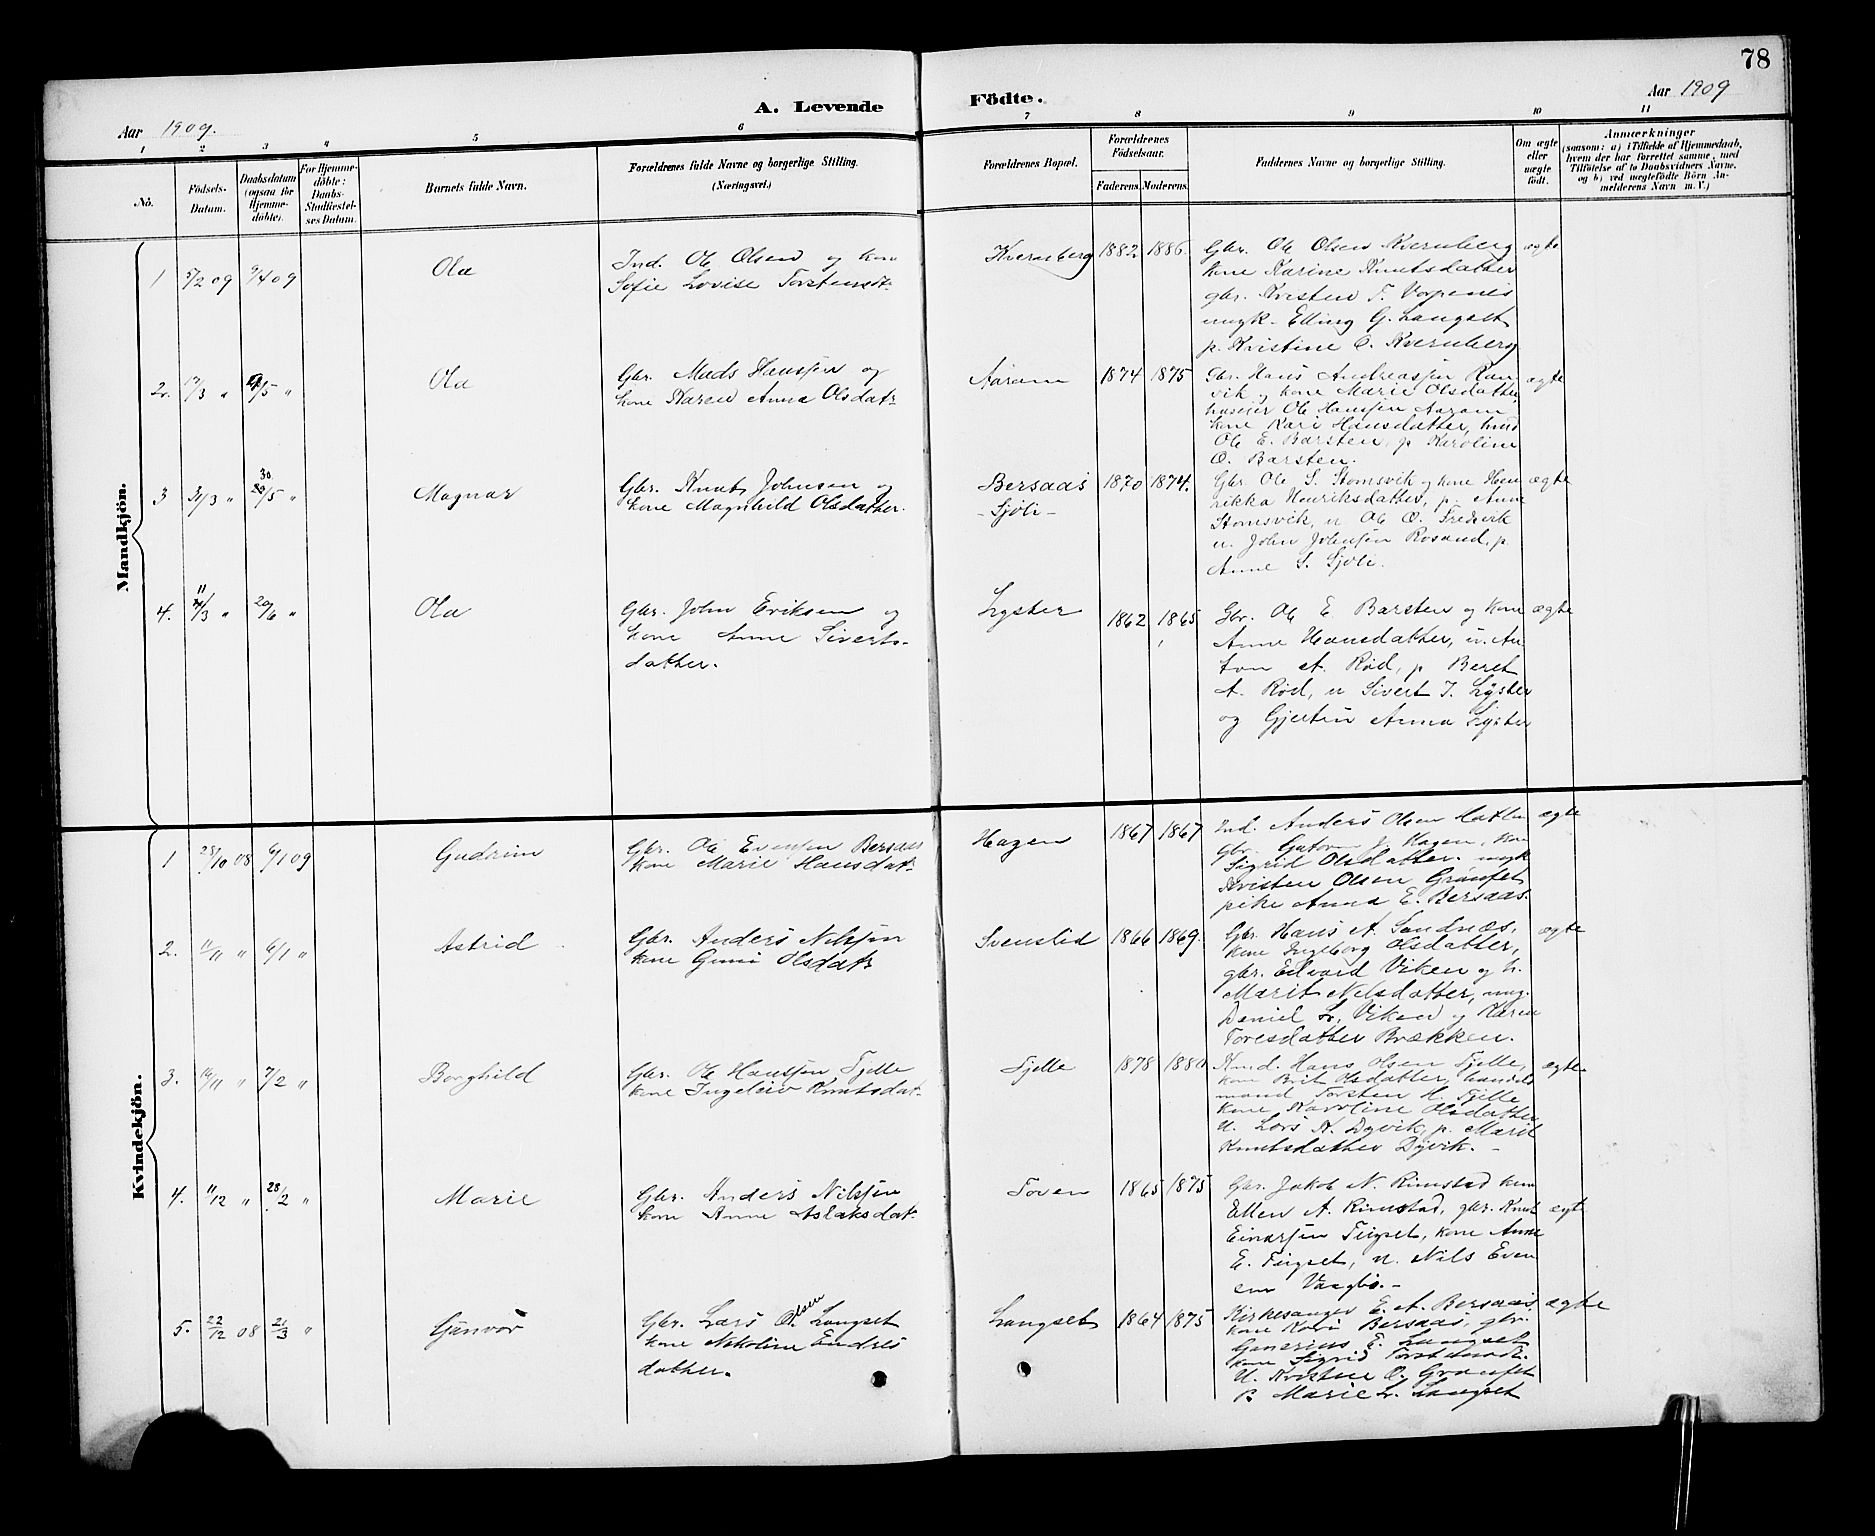 78
A. Levende Födte.
Aar 1909.
Aar 1909
1 2 3 4 5 6 7 8 9 10 11
No.
Födsels-
Datum.
Daabsdatum
(ogsaa for
Hjemme-
döbte).
For Hjemme-
döbte:
Daabs-
Stadfæstel-
ses Datum.
Barnets fulde Navn.
Forældrenes fulde Navne og borgerlige Stilling.
(Næringsvei.)
Forældrenes Bopæl.
Forældrenes
Födselsaar.
Faderens. Moderens.
Faddernes Navne og borgerlige Stilling.
Om ægte
eller
uægte
födt.
Anmærkninger
(saasom: a) i Tilfælde af Hjemmedaab,
hvem der har forrettet samme, med
Tilföielse af to Daabsvidners Navne,
og b) ved uægtefödte Börn An-
melderens Navn m. V.)
Mandkjön.
1 5/2 09 9/4 09
Ola
Ind. Ole Olsen og kone
Sofie Lovise Torstensdt.
Kvernberg 1882 1886
Gbr. Ole Olsen Kvernberg
kone Karine Knutsdatter
gbr. Kristen T. Vorpenes
ungk. Elling G. Langset
p. Kristine O. Kvernberg
ægte
2. 17/3 " 9/5 "
Ola
Gbr. Mads Hansen og
kone Karen Anna Olsdatr
Aaram 1874 1875
Gbr. Hans Andreassen Ran
vik og kone Marie Olsdatter
huseier Ole Hanssen Aaram
kone Kari Hansdatter,
Ole E. Barsten, p Karoline
O. Barsten.
ægte
3 31/3 " 30/5 "
Magnar
Gbr. Knut Johnsen og
kone Magnhild Olsdatter.
Bersaas
- Sjöli - 1870 1874.
Gbr. Ole S. Stomsvik og kone Hen
rikka Henriksdatter, p. Anne
Stomsvik, u Ole O. Fredsvik
u. John Johnsen Rosand, p.
Anne S. Sjöli.
ægte
4. 11/3 " 20/6 "
Ola
Gbr. John Eriksen og
kone Anne Siverts-
datter.
Lyster 1862 1865
Gbr. Ole E. Barsten og kone
Anne Hansdatter, u. An
ton A. Rød, p Beret
A. Rød, u Sivert J. Lyster
og Gjertine Anna Lyster
ægte
Kvindekjön.
1 28/10 08 6/1 09
Gudrun
Gbr. Ole Evensen Bersaas
kone Marie Hansdatr
Hagen 1867 1867
Ind. Anders Olsen
gbr. J. Hagen, kone
Sigrid Olsdatter. ungk
Kristen Olsen Grønset
pike Anna E. Bersaas.
ægte
2. 11/11 " 6/1 "
Astrid
Gbr. Anders Nilsen
kone Guni Olsdatr
Svenslid 1866 1869.
Gbr. Hans A. Sandnæs,
kone Ingeborg Olsdatter,
gbr. Edvard Viken og h.
Marit Nelsdatter, ung.
Daniel L. Viken og Karen
Toresdatter Brækken.
ægte
3. 14/11 " 7/2 "
Borghild
Gbr. Ole Hanssen Tjelle
kone Ingeleiv Knutsdat
Tjelle 1878 1880
Ind. Hans Olsen Tjelle,
kone Brit Olsdatter, handels
mand Torsten H. Tjelle
kone Karoline Olsdatter
u. Lars K. Dyvik, p. Marit
Knutsdatter Dyvik. -
ægte
4. 11/12 " 28/2 "
Marie
Gbr. Anders Nilsen
kone Anne Aslaksdat
Toven 1865 1875
Gbr. Jakob N. Rimstad kone
Ellen A. Rimstad, gbr. Knut
Einarsen Tirset, kone Anne
E. Tirset, u. Nils Even
sen Vaagbø. -
ægte
5. 22/12 08 21/3 "
Gunvor
Gbr. Lars Olsen Langset
kone Nekoline Endres
datter.
Langset 1864 1875
Kirkesanger E. A. Bersaas
kone Bersaas, gbr.
Gunerius E. Langset
kone Sigrid Torstensdt.
U. Kristen O. Grønset
P. Marie L. Langset
ægte